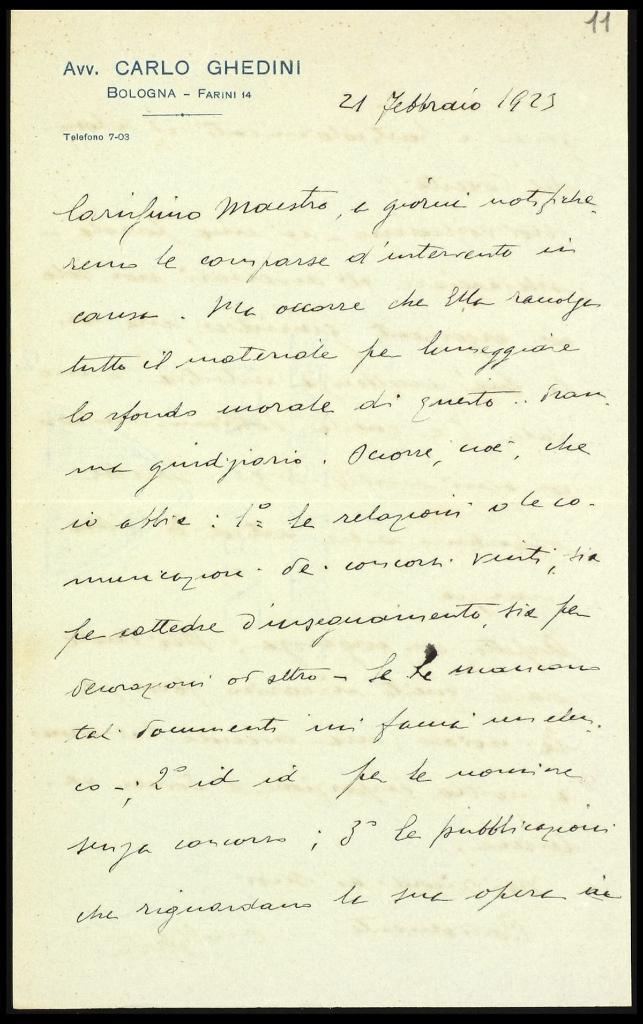 11
Avv. CARLO GHEDINI
BOLOGNA - FARINI 14
Telefono 7-03
21 Febbraio 1923
Carissimo Maestro, a giorni notifiche-
remo le comparse d'intervento in
causa. Ma occorre che Ella raccolga
tutto il materiale per lumeggiare
lo sfondo morale di questo.. dram-
ma giudiziario. Occorre, cioè, che
io abbia: 1°= le relazioni o le co-
municazioni dei concorsi vinti, sia
per cattedre d'insegnamento, sia per
decorazioni od altro - Se Le mancano
tali documenti mi faccia un elen-
co -; 2° id id per le nomine
senza concorso; 3° le pubblicazioni
che riguardano la sua opera in